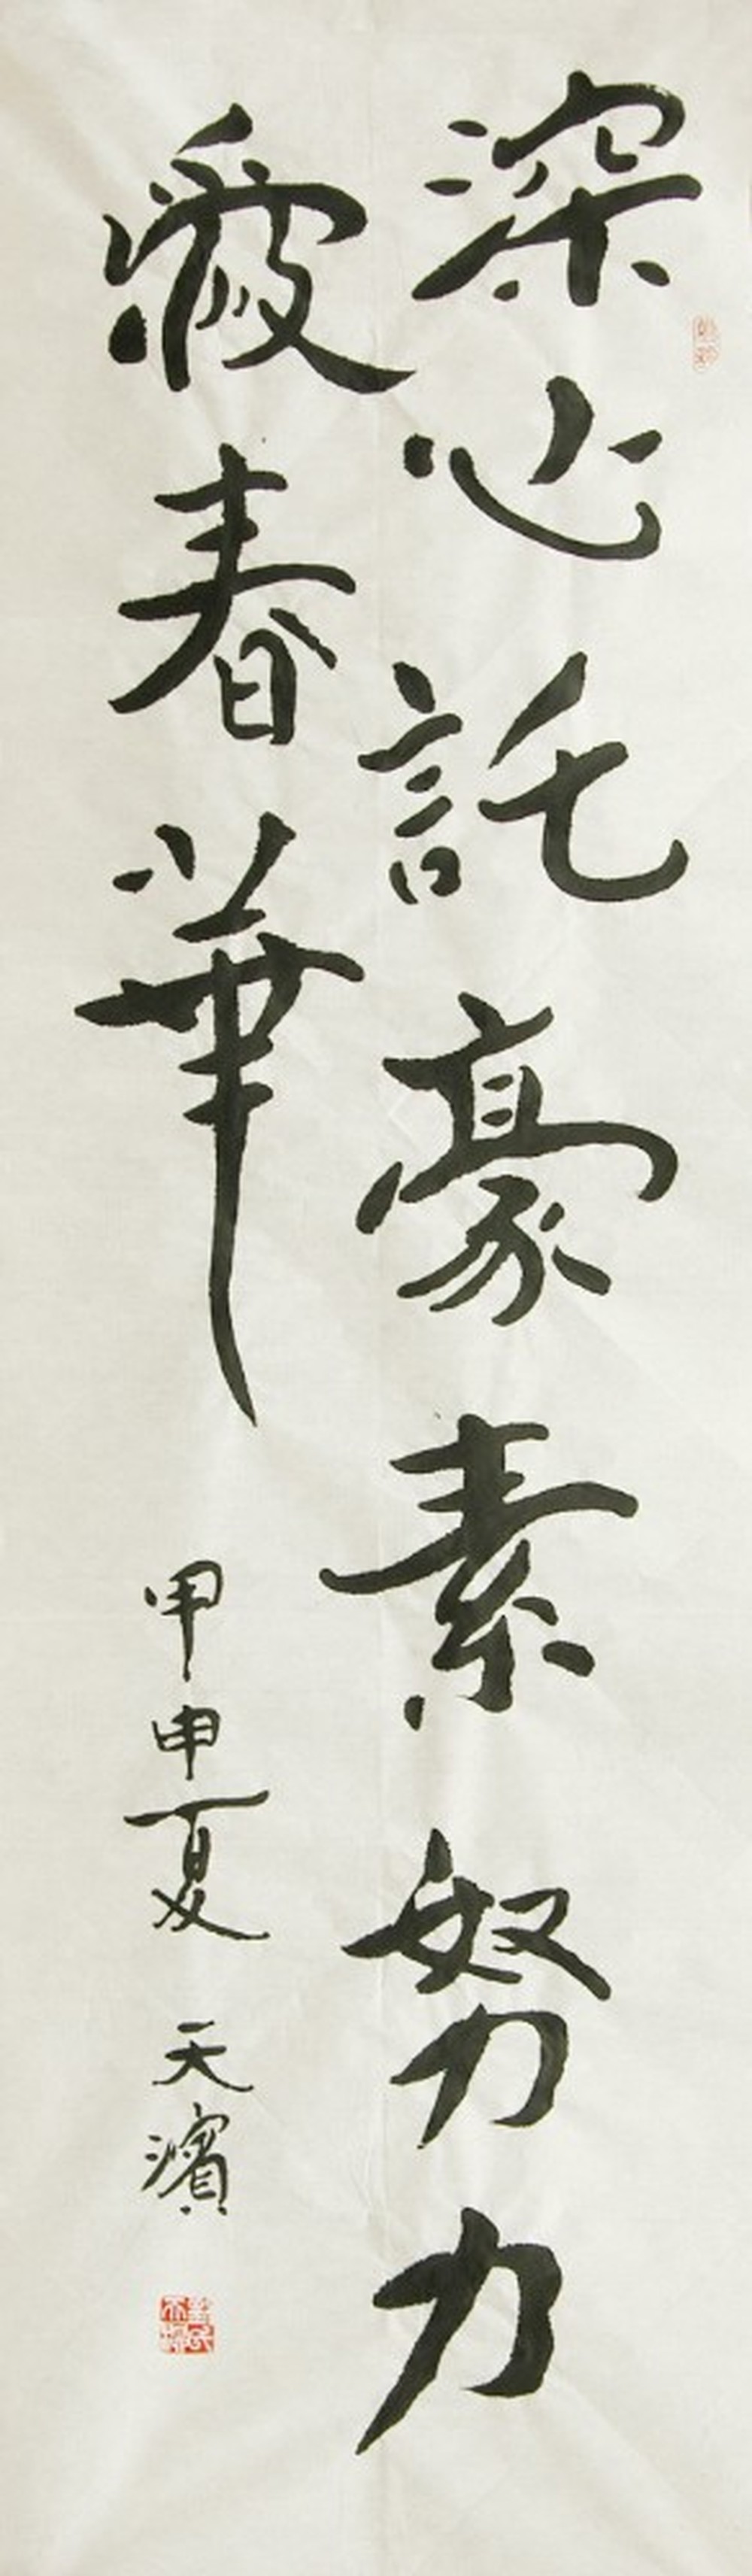 深心託豪素努力
愛春華
甲申夏 天濱